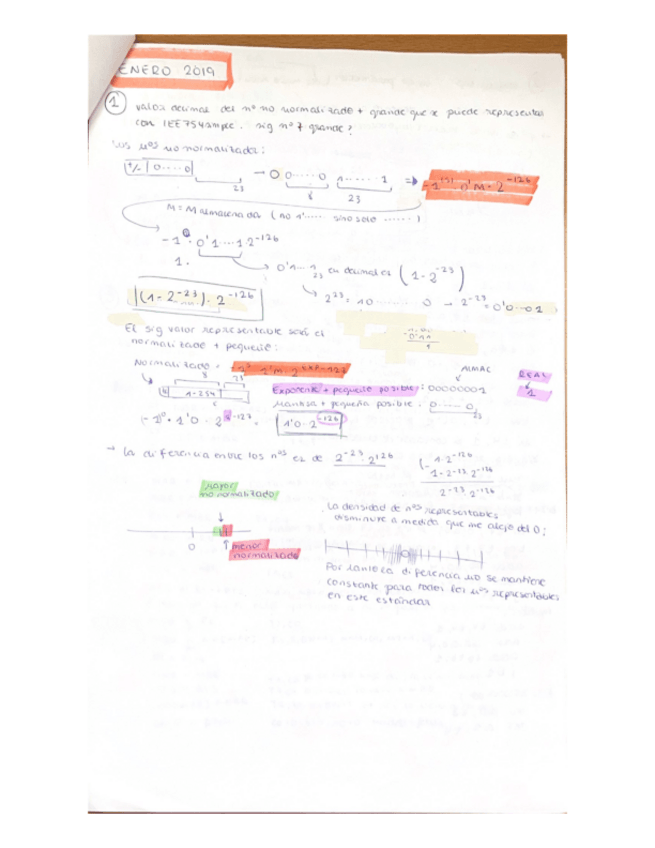 ENERO 2019
1 Valor decimal del nº no normalizado + grande que se puede representar
con IEEE754 simple. Sig nº + grande?
Los nos no normalizados:
+/- 0....0 → 0 0.....0 1......1 ⇒ -1 0'M · 2^-126
23 8 23
M = M almacenada (no 1'...... sino solo ......)
-1^0 · 0'1....1 · 2^-126
1. → 0'1... 1, en decimal es (1 - 2^-23)
23
(1 - 2^-23) · 2^-126 → 2^23 = 10........0 → 2^-23 = 0'0...01
El sig valor representable será el
normalizado + pequeño:
Normalizado = 1'M 2^exp-127
ALMAC REAL
8 23 Exponente + pequeño posible: 00000001 1
1-254 Mantisa + pequeña posible: 0.....0
23
-1^0 · 1'0 · 2^1-127 = 1'0 · 2^-126
→ La diferencia entre los nos es de 2^-23 · 2^126
1 · 2^-126
1 - 2^-23 · 2^-126
2^-23 · 2^-126
Mayor
no normalizado
La densidad de nos representables
disminuye a medida que me alejo del 0:
0 menor
normalizado
0
Por tanto la diferencia no se mantiene
constante para todos los nos representables
en este estándar